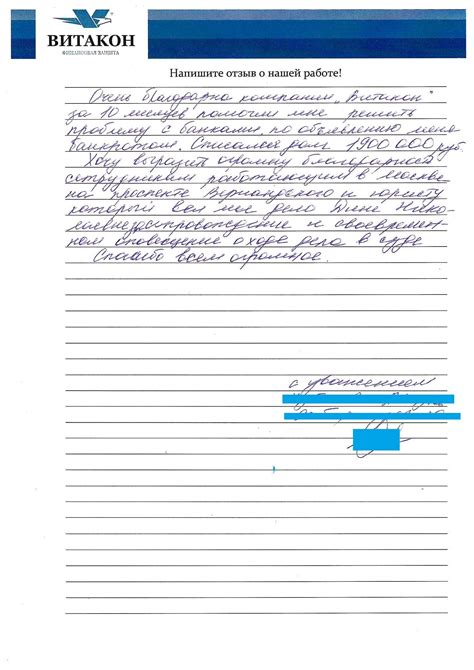 ВИТАКОН
ФИНАНСОВАЯ ЗАЩИТА
Напишите отзыв о нашей работе!
Очень благодарна компании „Витакон"
за 10 месяцев помогли мне решить
проблему с банками, по объявлению меня
банкротом. Списали долг 1900 000 руб.
Хочу выразить огромную благодарность
сотрудникам работающим в Москве
на проспекте Вернадского и юристу
который вел мое дело Дине Нико-
лаевне за сопровождение и своевремен-
ном оповещение о ходе дела в суде
Спасибо всем огромное.
с уважением